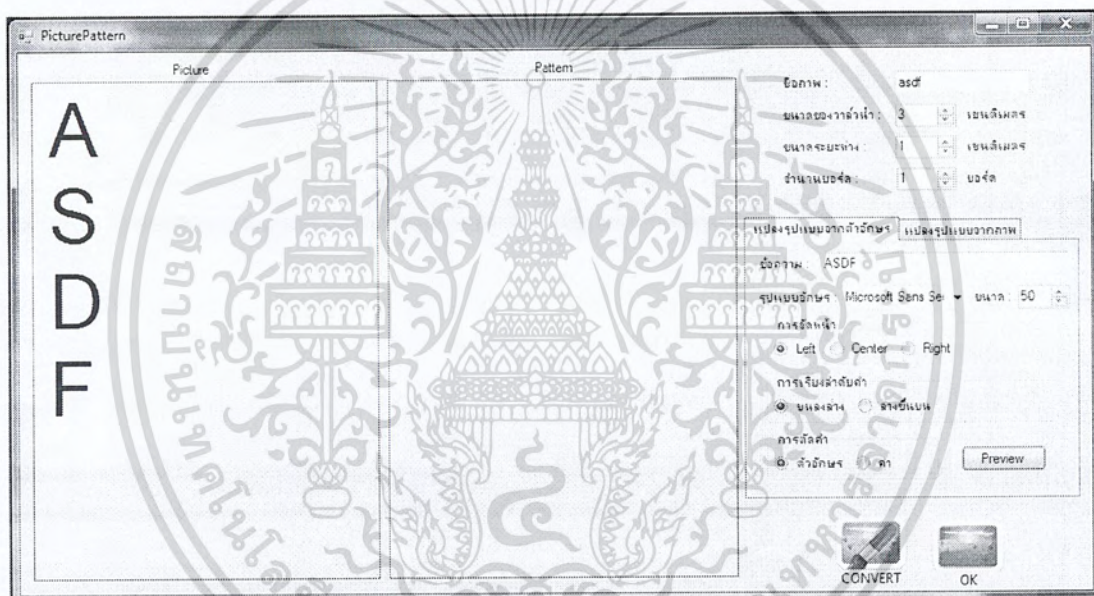 PicturePattern
Picture
Pattern
A
S
D
F
ชื่อภาพ : asdf
ขนาดของวาล์วน้ำ : 3 เซนติเมตร
ขนาดระยะห่าง : 1 เซนติเมตร
จำนวนบอร์ด : 1 บอร์ด
แปลงรูปแบบจากตัวอักษร แปลงรูปแบบจากภาพ
ข้อความ : ASDF
รูปแบบอักษร : Microsoft Sans Se ขนาด : 50
การจัดหน้า
Left Center Right
การเรียงลำดับคำ
บนลงล่าง ล่างขึ้นบน
การตัดคำ
ตัวอักษร คำ
Preview
CONVERT OK